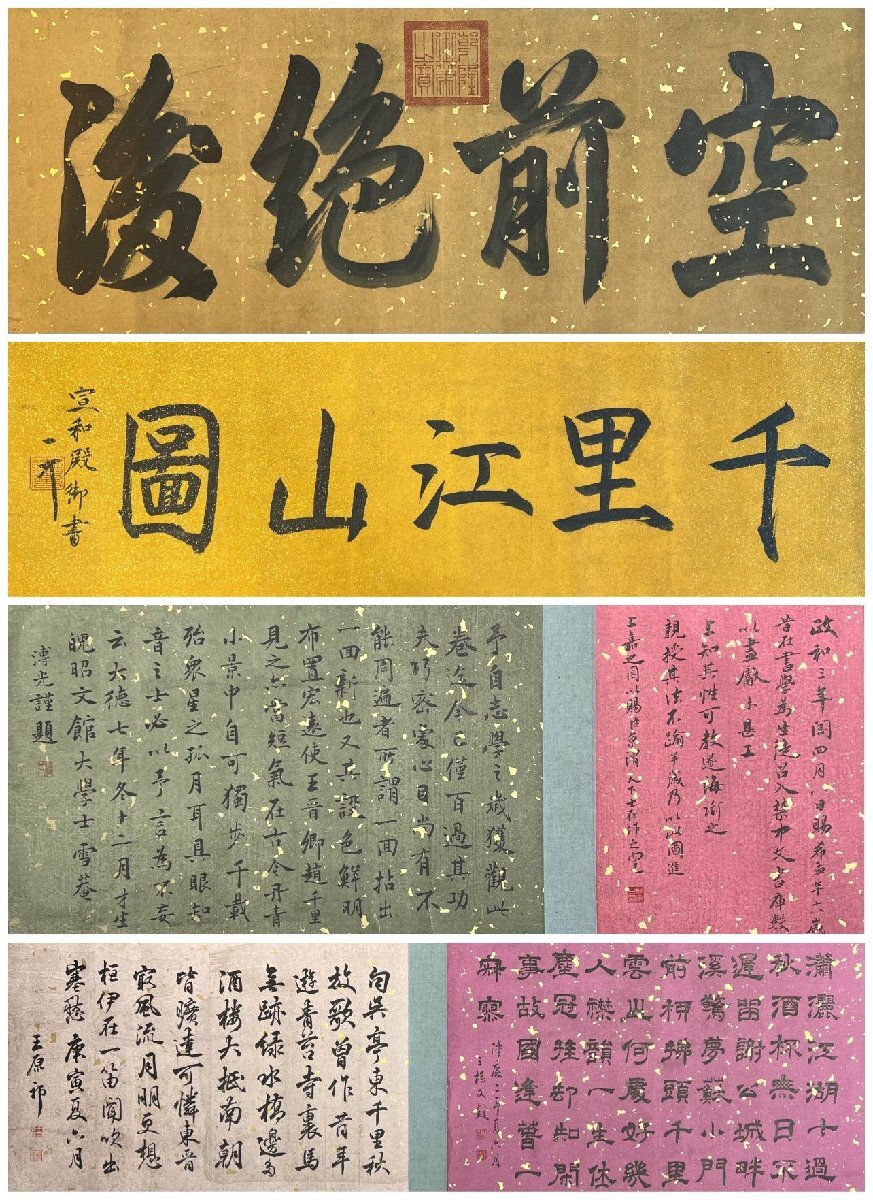 空前絶後
乾隆御筆之寶
千里江山圖
宣和殿御書
政和三年閏四月八日賜希孟年十八歲
昔在畫學為生徒召入禁中文書庫數
以畫獻未甚工
上知其性可教遂誨諭之
親授其法不踰半歲乃以此圖進
上嘉之因以賜臣京謂天下士在作之而已
予自志學之歲獲觀此
卷迄今已僅百過其功
夫巧密處心目尚有不
能周遍者所謂一回拈出
一回新也又其設色鮮明
布置宏遠使王晉卿趙千里
見之亦當短氣在古今丹青
小景中自可獨步千載
殆眾星之孤月耳具眼知
音之士必以予言為不妄
云大德七年冬十二月才生
魄昭文館大學士雪菴
溥光謹題
瀟灑江湖十過
秋酒杯無日不
遲留謝公城畔
溪驚夢蘇小門
前柳拂頭千里
雲山何處好幾
人襟韻一生休
塵冠挂却知閑
事故國逢萅一
寂寥
句吳亭東千里秋
放歌曾作昔年
遊青苔寺裏馬
無跡綠水橋邊多
酒樓大抵南朝
皆曠達可憐東晉
最風流月明更想
桓伊在一笛聞吹出
塞愁 庚寅夏六月
王原祁